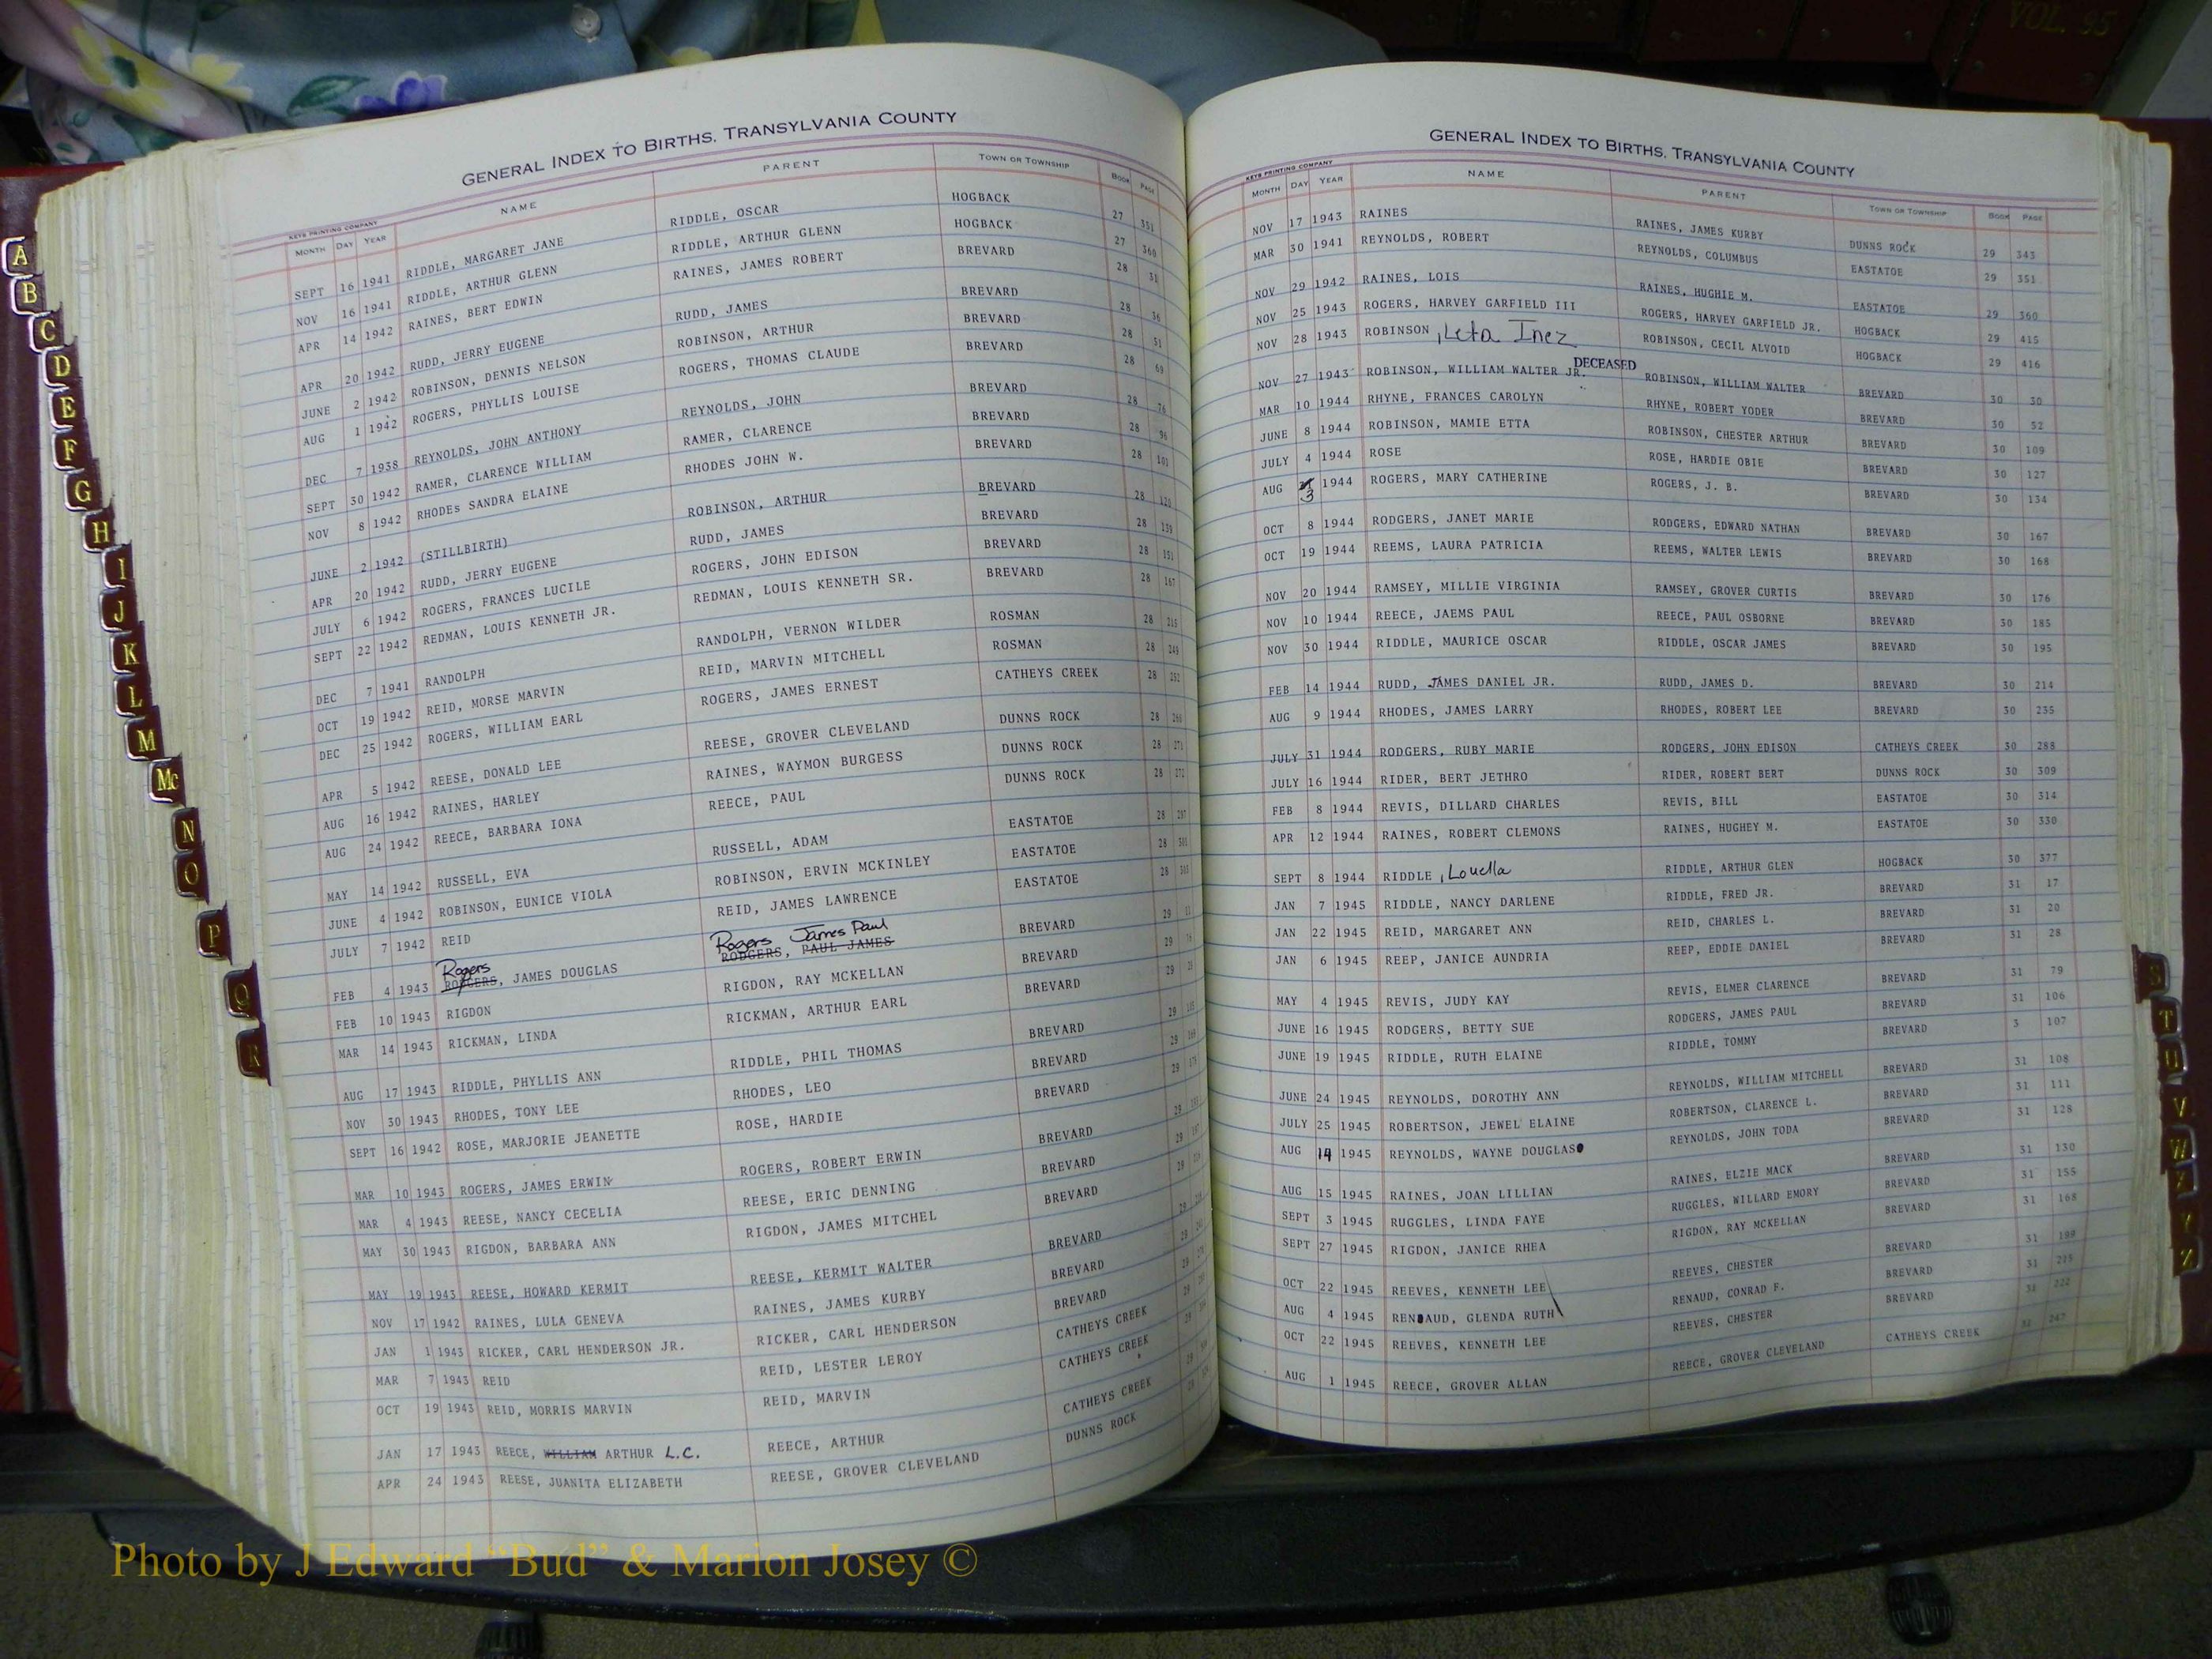 VOL. 95
GENERAL INDEX TO BIRTHS, TRANSYLVANIA COUNTY
KEYS PRINTING COMPANY
MONTH DAY YEAR NAME PARENT TOWN OR TOWNSHIP BOOK PAGE
SEPT 16 1941 RIDDLE, MARGARET JANE RIDDLE, OSCAR HOGBACK 27 351
NOV 16 1941 RIDDLE, ARTHUR GLENN RIDDLE, ARTHUR GLENN HOGBACK 27 360
APR 14 1942 RAINES, BERT EDWIN RAINES, JAMES ROBERT BREVARD 28 31
APR 20 1942 RUDD, JERRY EUGENE RUDD, JAMES BREVARD 28 36
JUNE 2 1942 ROBINSON, DENNIS NELSON ROBINSON, ARTHUR BREVARD 28 51
AUG 1 1942 ROGERS, PHYLLIS LOUISE ROGERS, THOMAS CLAUDE BREVARD 28 69
DEC 7 1938 REYNOLDS, JOHN ANTHONY REYNOLDS, JOHN BREVARD 28 76
SEPT 30 1942 RAMER, CLARENCE WILLIAM RAMER, CLARENCE BREVARD 28 96
NOV 8 1942 RHODEs SANDRA ELAINE RHODES JOHN W. BREVARD 28 101
JUNE 2 1942 (STILLBIRTH) ROBINSON, ARTHUR BREVARD 28 120
APR 20 1942 RUDD, JERRY EUGENE RUDD, JAMES BREVARD 28 139
JULY 6 1942 ROGERS, FRANCES LUCILE ROGERS, JOHN EDISON BREVARD 28 151
SEPT 22 1942 REDMAN, LOUIS KENNETH JR. REDMAN, LOUIS KENNETH SR. BREVARD 28 167
DEC 7 1941 RANDOLPH RANDOLPH, VERNON WILDER ROSMAN 28 215
OCT 19 1942 REID, MORSE MARVIN REID, MARVIN MITCHELL ROSMAN 28 249
DEC 25 1942 ROGERS, WILLIAM EARL ROGERS, JAMES ERNEST CATHEYS CREEK 28 252
APR 5 1942 REESE, DONALD LEE REESE, GROVER CLEVELAND DUNNS ROCK 28 260
AUG 16 1942 RAINES, HARLEY RAINES, WAYMON BURGESS DUNNS ROCK 28 271
AUG 24 1942 REECE, BARBARA IONA REECE, PAUL DUNNS ROCK 28 272
MAY 14 1942 RUSSELL, EVA RUSSELL, ADAM EASTATOE 28 297
JUNE 4 1942 ROBINSON, EUNICE VIOLA ROBINSON, ERVIN MCKINLEY EASTATOE 28
JULY 7 1942 REID REID, JAMES LAWRENCE EASTATOE 28
Rogers Rogers James Paul
FEB 4 1943 RODGERS, JAMES DOUGLAS RODGERS, PAUL JAMES BREVARD 29
FEB 10 1943 RIGDON RIGDON, RAY MCKELLAN BREVARD 29
MAR 14 1943 RICKMAN, LINDA RICKMAN, ARTHUR EARL BREVARD 29
AUG 17 1943 RIDDLE, PHYLLIS ANN RIDDLE, PHIL THOMAS BREVARD 29
NOV 30 1943 RHODES, TONY LEE RHODES, LEO BREVARD 29
SEPT 16 1942 ROSE, MARJORIE JEANETTE ROSE, HARDIE BREVARD 29
MAR 10 1943 ROGERS, JAMES ERWIN ROGERS, ROBERT ERWIN BREVARD 29
MAR 4 1943 REESE, NANCY CECELIA REESE, ERIC DENNING BREVARD 29
MAY 30 1943 RIGDON, BARBARA ANN RIGDON, JAMES MITCHEL BREVARD 29
MAY 19 1943 REESE, HOWARD KERMIT REESE, KERMIT WALTER BREVARD 29
NOV 17 1942 RAINES, LULA GENEVA RAINES, JAMES KURBY BREVARD 29
JAN 1 1943 RICKER, CARL HENDERSON JR. RICKER, CARL HENDERSON BREVARD 29
MAR 7 1943 REID REID, LESTER LEROY CATHEYS CREEK 29
OCT 19 1943 REID, MORRIS MARVIN REID, MARVIN CATHEYS CREEK 29
JAN 17 1943 REECE, WILLIAM ARTHUR L.C. REECE, ARTHUR CATHEYS CREEK 29
APR 24 1943 REESE, JUANITA ELIZABETH REESE, GROVER CLEVELAND DUNNS ROCK
GENERAL INDEX TO BIRTHS, TRANSYLVANIA COUNTY
KEYS PRINTING COMPANY
MONTH DAY YEAR NAME PARENT TOWN OR TOWNSHIP BOOK PAGE
NOV 17 1943 RAINES RAINES, JAMES KURBY DUNNS ROCK 29 343
MAR 30 1941 REYNOLDS, ROBERT REYNOLDS, COLUMBUS EASTATOE 29 351
NOV 29 1942 RAINES, LOIS RAINES, HUGHIE M. EASTATOE 29 360
NOV 25 1943 ROGERS, HARVEY GARFIELD III ROGERS, HARVEY GARFIELD JR. HOGBACK 29 415
NOV 28 1943 ROBINSON, Leta Inez ROBINSON, CECIL ALVOID HOGBACK 29 416
DECEASED
NOV 27 1943 ROBINSON, WILLIAM WALTER JR. ROBINSON, WILLIAM WALTER BREVARD 30 30
MAR 10 1944 RHYNE, FRANCES CAROLYN RHYNE, ROBERT YODER BREVARD 30 52
JUNE 8 1944 ROBINSON, MAMIE ETTA ROBINSON, CHESTER ARTHUR BREVARD 30 109
JULY 4 1944 ROSE ROSE, HARDIE OBIE BREVARD 30 127
AUG 3 1944 ROGERS, MARY CATHERINE ROGERS, J. B. BREVARD 30 134
OCT 8 1944 RODGERS, JANET MARIE RODGERS, EDWARD NATHAN BREVARD 30 167
OCT 19 1944 REEMS, LAURA PATRICIA REEMS, WALTER LEWIS BREVARD 30 168
NOV 20 1944 RAMSEY, MILLIE VIRGINIA RAMSEY, GROVER CURTIS BREVARD 30 176
NOV 10 1944 REECE, JAEMS PAUL REECE, PAUL OSBORNE BREVARD 30 185
NOV 30 1944 RIDDLE, MAURICE OSCAR RIDDLE, OSCAR JAMES BREVARD 30 195
FEB 14 1944 RUDD, JAMES DANIEL JR. RUDD, JAMES D. BREVARD 30 214
AUG 9 1944 RHODES, JAMES LARRY RHODES, ROBERT LEE BREVARD 30 235
JULY 31 1944 RODGERS, RUBY MARIE RODGERS, JOHN EDISON CATHEYS CREEK 30 288
JULY 16 1944 RIDER, BERT JETHRO RIDER, ROBERT BERT DUNNS ROCK 30 309
FEB 8 1944 REVIS, DILLARD CHARLES REVIS, BILL EASTATOE 30 314
APR 12 1944 RAINES, ROBERT CLEMONS RAINES, HUGHEY M. EASTATOE 30 330
SEPT 8 1944 RIDDLE, Louella RIDDLE, ARTHUR GLEN HOGBACK 30 377
JAN 7 1945 RIDDLE, NANCY DARLENE RIDDLE, FRED JR. BREVARD 31 17
JAN 22 1945 REID, MARGARET ANN REID, CHARLES L. BREVARD 31 20
JAN 6 1945 REEP, JANICE AUNDRIA REEP, EDDIE DANIEL BREVARD 31 28
MAY 4 1945 REVIS, JUDY KAY REVIS, ELMER CLARENCE BREVARD 31 79
JUNE 16 1945 RODGERS, BETTY SUE RODGERS, JAMES PAUL BREVARD 31 106
JUNE 19 1945 RIDDLE, RUTH ELAINE RIDDLE, TOMMY BREVARD 3 107
JUNE 24 1945 REYNOLDS, DOROTHY ANN REYNOLDS, WILLIAM MITCHELL BREVARD 31 108
JULY 25 1945 ROBERTSON, JEWEL ELAINE ROBERTSON, CLARENCE L. BREVARD 31 111
AUG 14 1945 REYNOLDS, WAYNE DOUGLAS REYNOLDS, JOHN TODA BREVARD 31 128
AUG 15 1945 RAINES, JOAN LILLIAN RAINES, ELZIE MACK BREVARD 31 130
SEPT 3 1945 RUGGLES, LINDA FAYE RUGGLES, WILLARD EMORY BREVARD 31 155
SEPT 27 1945 RIGDON, JANICE RHEA RIGDON, RAY MCKELLAN BREVARD 31 168
OCT 22 1945 REEVES, KENNETH LEE REEVES, CHESTER BREVARD 31 199
AUG 4 1945 RENAUD, GLENDA RUTH RENAUD, CONRAD F. BREVARD 31
OCT 22 1945 REEVES, KENNETH LEE REEVES, CHESTER BREVARD 31 222
AUG 1 1945 REECE, GROVER ALLAN REECE, GROVER CLEVELAND CATHEYS CREEK 31 267
A
B
C
D
E
F
G
H
I
J
K
L
M
Mc
N
O
P
Q
R
S
T
U
V
W
X
Y
Z
Photo by J Edward “Bud” & Marion Josey ©